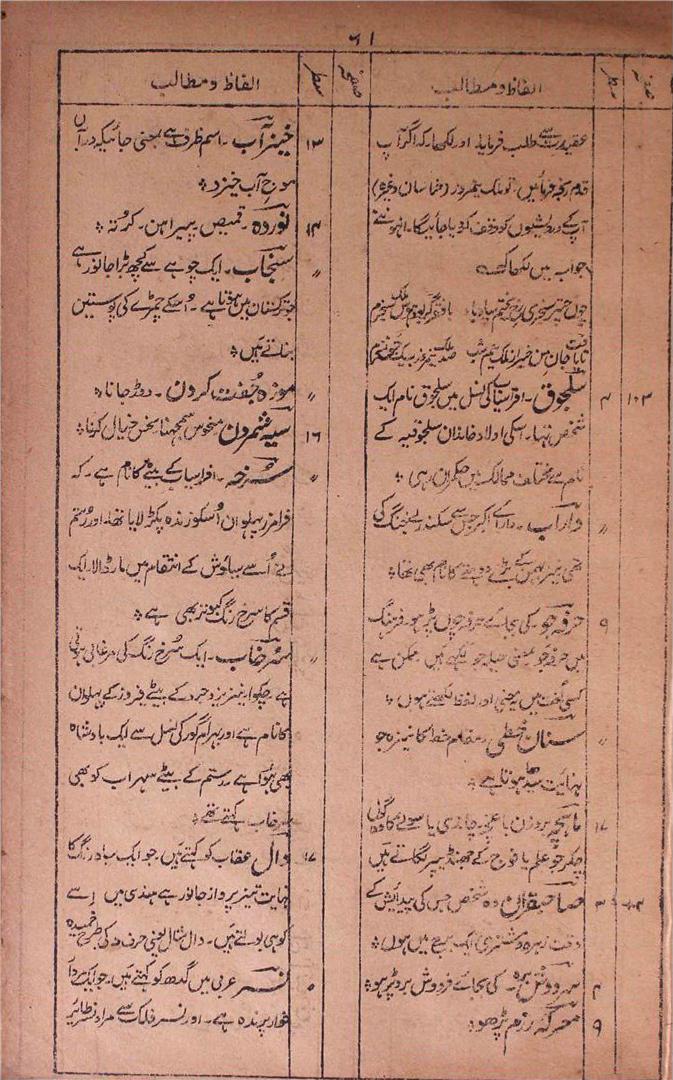 ۶۱
صفحہ
سطر
الفاظ و مطالب
عقیدت سے طلب فرمایا۔ اور لکھا۔ کہ اگر آپ
قدم رنجہ فرمائیں۔ تو ملک نیمروز (خراسان وغیرہ)
آپ کے درویشوں کو وقف کر دیا جائیگا۔ انہوں نے
جواب میں لکھا کہ
چوں چتر سنجری رخ بختم سیاہ باد
تا یافت جان من خبر از ملک نیم شب
۱۰۳
۴
سلجوق۔ افراسیاب کی نسل میں سلجوق نام ایک
شخص تھا۔ اسکی اولاد خاندان سلجوقیہ کے
نام سے مختلف ممالک میں حکمران رہی؛
〃
داراب۔ دارائے اکبر جس سے سکندر نے جنگ کی
تھی نیز بہمن کے بیٹے کا نام بھی تھا؛
۹
حرفہ جو۔ کی بجائے حرفہ چوں پڑھو۔ فرہنگ
میں حرفہ جو بمعنی حیلہ جو لکھے ہیں۔ ممکن ہے
کسی لغت میں یہ معنی اور لفظ لکھے ہوں؛
〃
سنان خطی۔ مقام خط کا نیزہ جو
نہایت سیدھا ہوتا ہے؛
۱۷
ماہچہ بروزن باغچہ چاندی یا سونے کا گول
چکر جو علم یا فوج کے جھنڈے پر لگاتے ہیں
۳
صاحبقران وہ شخص جس کی پیدائش کے
وقت زہرہ و مشتری ایک برج میں ہوں؛
۴
کی بجائے فردوش بر و پڑھو؛
۹
معرکہ رزم پڑھو؛
صفحہ
سطر
الفاظ و مطالب
۱۳
خیز آب۔ اسم ظرف ہے بمعنی جائیکہ در آں
موج آب خیزد؛
۱۴
نوردہ۔ قمیص۔ پیراہن۔ کرتہ؛
〃
سنجاب۔ ایک چوہے سے کچھ بڑا جانور ہے
جو ترکستان میں ہوتا ہے۔ اسکے چمڑے کی پوستین
بناتے ہیں؛
〃
موزہ جفت کردن۔ دوڑ جانا؛
۱۶
سیہ شمردن منحوس سمجھنا نحس خیال کرنا؛
〃
سرخہ۔ افراسیاب کے بیٹے کا نام ہے۔ کہ
فرامرز پہلوان اسکو زندہ پکڑ لایا تھا۔ اور رستم
نے اسے سیاوش کے انتقام میں مار ڈالا۔ ایک
قسم کا سرخ رنگ کبوتر بھی ہے؛
〃
سرخاب۔ ایک سرخ رنگ کی مرغابی ہوتی
ہے چکوا۔ نیز یزدجرد کے بیٹے فیروز کے پہلوان
کا نام ہے اور بہرام گور کی نسل سے ایک بادشاہ
بھی ہوا ہے رستم کے بیٹے سہراب کو بھی
سرخاب کہتے تھے؛
۱۷
دال عقاب کو کہتے ہیں۔ جو ایک سیاہ رنگ کا
نہایت تیز پرواز جانور ہے ہندی میں اسے
کوہی بولتے ہیں۔ دال مثال یعنی حرف د کی طرح خمیدہ
نسر عربی میں گدھ کو کہتے ہیں۔ جو ایک مردار
خوار پرندہ ہے۔ اور نسر فلک سے مراد نسر طائر